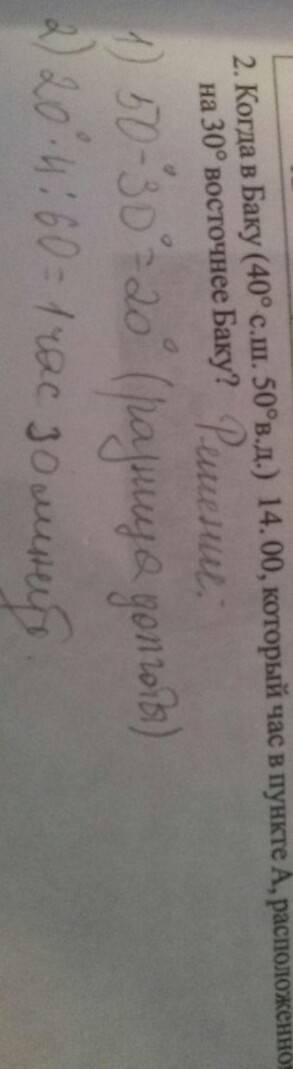 2. Когда в Баку (40° с.ш. 50°в.д.) 14. 00, который час в пункте А, расположенно
на 30° восточнее Баку?
Решение:
1) 50°-30°=20° (разница долготы)
2) 20°·4:60=1 час 30 минуты.